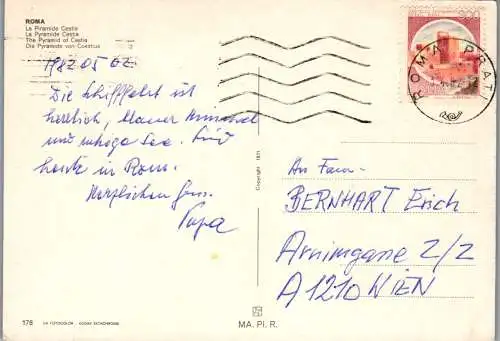 ROMA
La Piramide Cestia
La Pyramide Cestia
The Pyramid of Cestia
Die Pyramide von Coestius
1982 05 02.
Die Schifffahrt ist
herrlich, blauer Himmel
und ruhige See. Sind
heute in Rom.
Herzlichen Gruss
Papa
Copyright
300
ROMA PRATI
An Fam.
BERNHART Erich
Arnimgasse 2/2
A1210 WIEN
178
KODAK EKTACHROME
MA. PI. R.